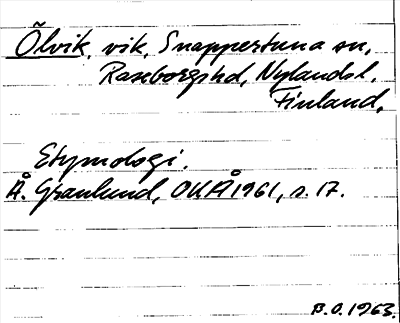 Ölvik, vik, Snappertuna sn,
Raseborgs hd, Nylands l,
Finland.
Etymologi.
Å. Granlund, OUÅ 1961, s. 17.
B.O. 1963.